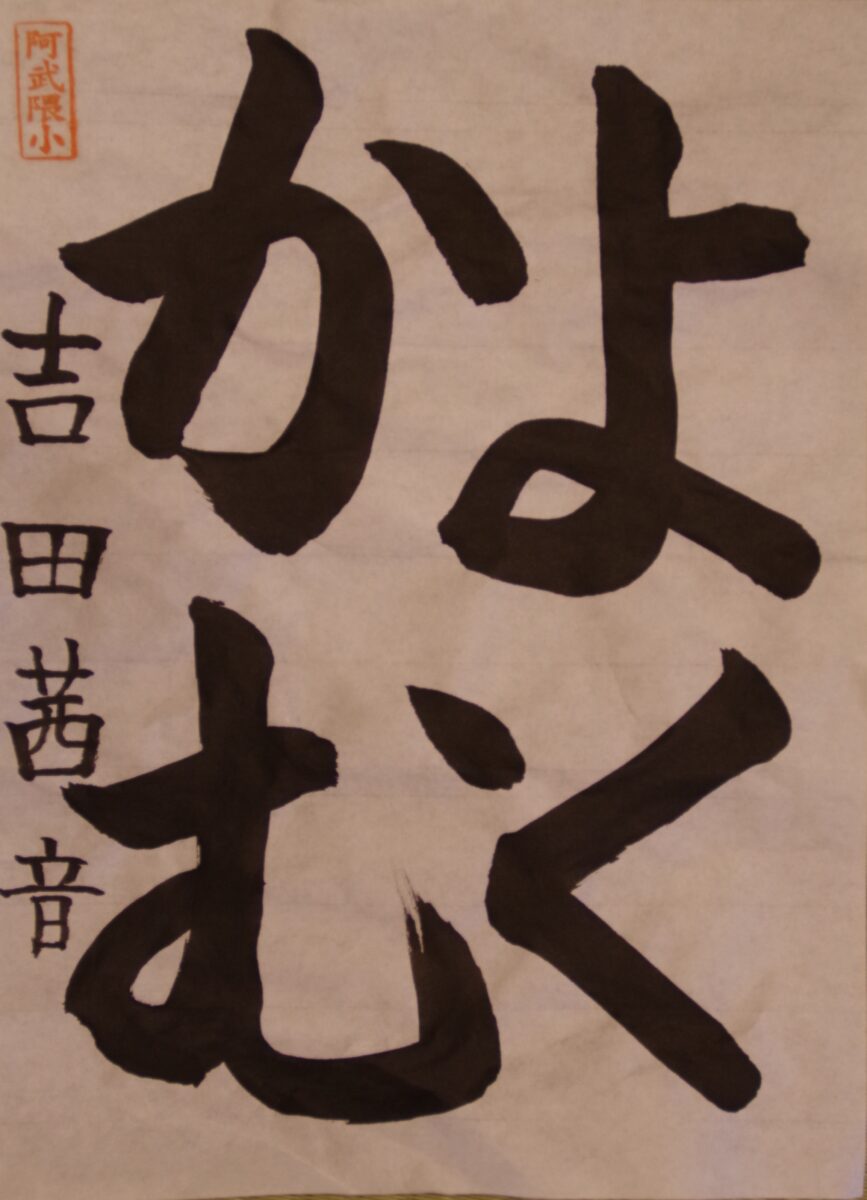 よく
かむ
阿武隈小
吉田茜音